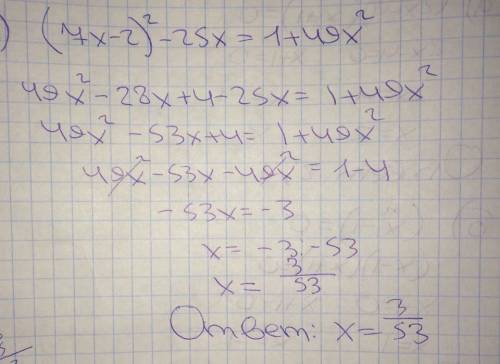 ) (7x-2)²-25x=1+49x²
49x²-28x+4-25x=1+49x²
49x²-53x+4=1+49x²
49x²-53x-49x²=1-4
-53x=-3
x=-3:-53
x=3/53
Ответ: x=3/53